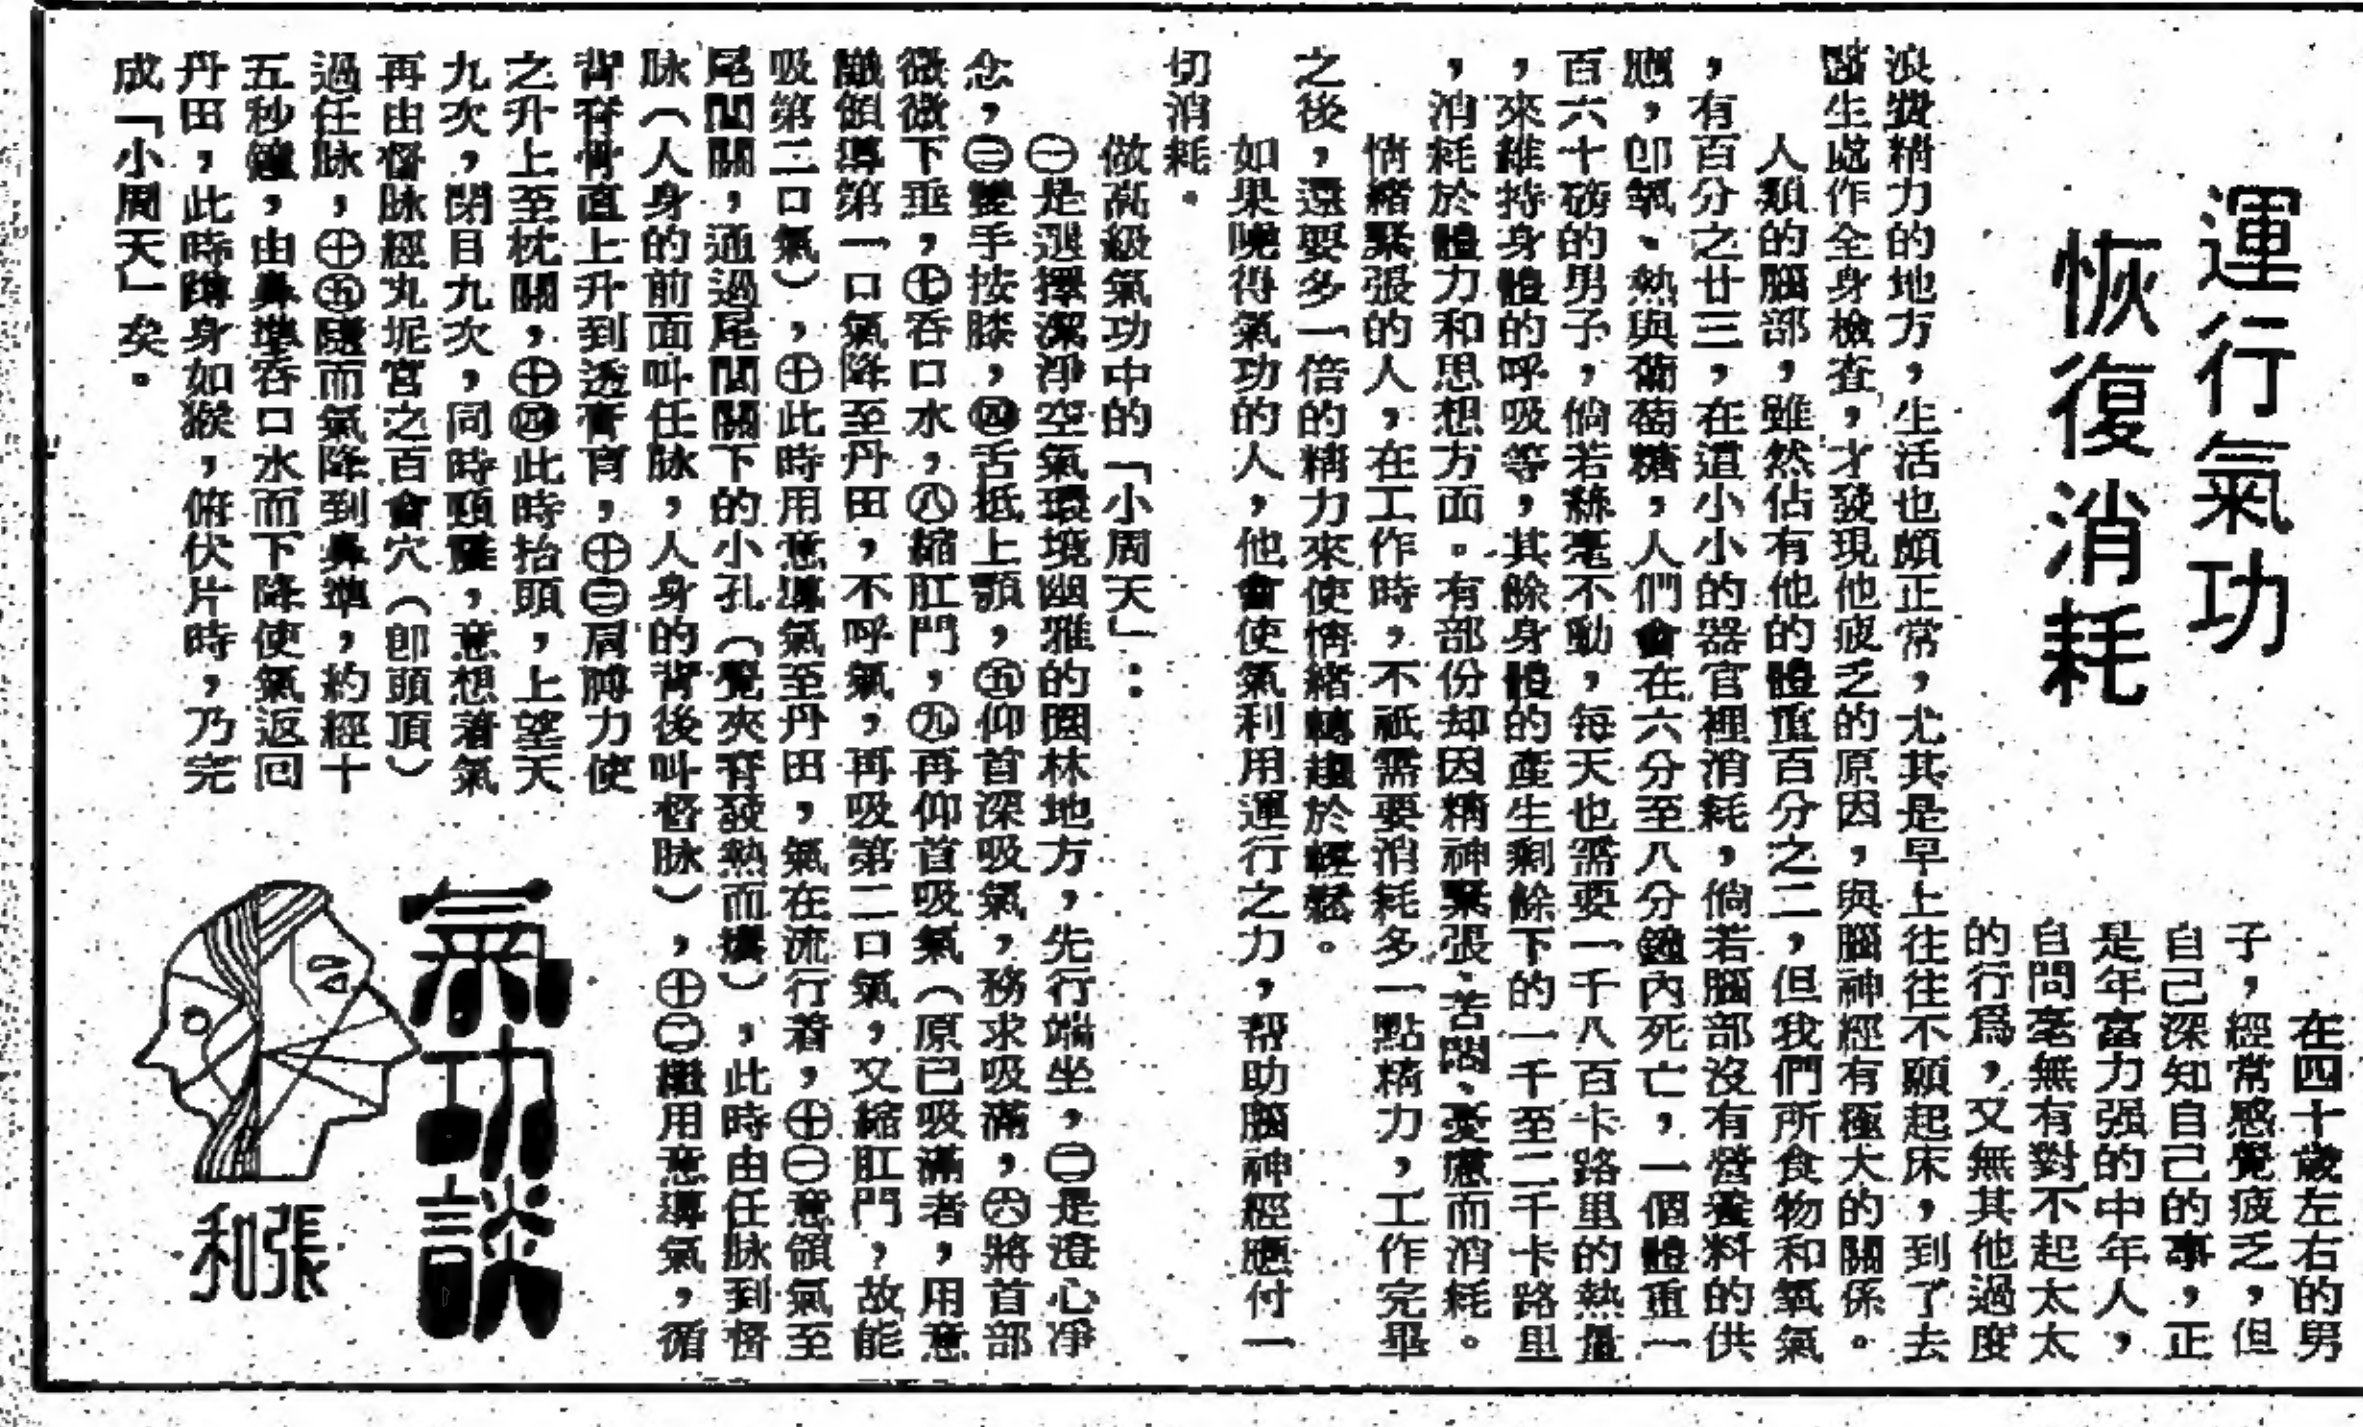 運行氣功
恢復消耗
在四十歲左右的男
子，經常感覺疲乏，但
自己深知自己的事，正
是年富力强的中年人，
自問毫無有對不起太太
的行爲，又無其他過度
浪費精力的地方，生活也頗正常，尤其是早上往往不願起床，到了去
醫生處作全身檢查，才發現他疲乏的原因，與腦神經有極大的關係。
人類的腦部，雖然佔有他的體重百分之二，但我們所食物和氧氣
，有百分之廿三，在這小小的器官裡消耗，倘若腦部沒有營養料的供
應，卽氧、熱與葡萄糖，人們會在六分至八分鐘內死亡，一個體重一
百六十磅的男子，倘若絲毫不動，每天也需要一千八百卡路里的熱量
，來維持身體的呼吸等，其餘身體的產生剩餘下的一千至二千卡路里
，消耗於體力和思想方面。有部份却因精神緊張、苦悶、憂慮而消耗。
情緒緊張的人，在工作時，不祇需要消耗多一點精力，工作完畢
之後，還要多一倍的精力來使情緒轉趨於輕鬆。
如果曉得氣功的人，他會使氣利用運行之力，帮助腦神經應付一
切消耗。
做高級氣功中的「小周天」：
㊀是選擇潔淨空氣環境幽雅的園林地方，先行端坐，㊁是澄心凈
念，㊂雙手按膝，㊃舌抵上顎，㊄仰首深吸氣，務求吸滿，㊅將首部
微微下垂，㊆吞口水，㊇縮肛門，㊈再仰首吸氣（原已吸滿者，用意
識領導第一口氣降至丹田，不呼氣，再吸第二口氣，又縮肛門，故能
吸第二口氣），㊉此時用意導氣至丹田，氣在流行着，㊉㊀意領氣至
尾閭關，通過尾閭關下的小孔（覺夾脊發熱而癢），此時由任脉到督
脉（人身的前面叫任脉，人身的背後叫督脉），㊉㊁繼用意導氣，循
背脊骨直上升到透膏肓，㊉㊂肩膊力使
之升上至枕關，㊉㊃此時抬頭，上望天
九次，閉目九次，同時頸聳，意想着氣
再由督脉經丸坭宮之百會穴（卽頭頂）
過任脉，㊉㊄隨而氣降到鼻準，約經十
五秒鐘，由鼻準吞口水而下降使氣返回
丹田，此時蹲身如猴，俯伏片時，乃完
成「小周天」矣。
氣功談
張和